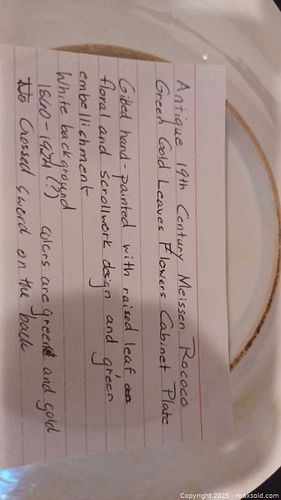 Antique 19th Century Meissen Rococo
Green Gold Leaves Flowers Cabinet Plate
Gilded hand-painted with raised leaf,
floral and scrollwork design and green
embellishment
White background
1860-1924 (?) colors are green and gold
No Crossed sword on the back
Copyright 2025 - maxsold.com